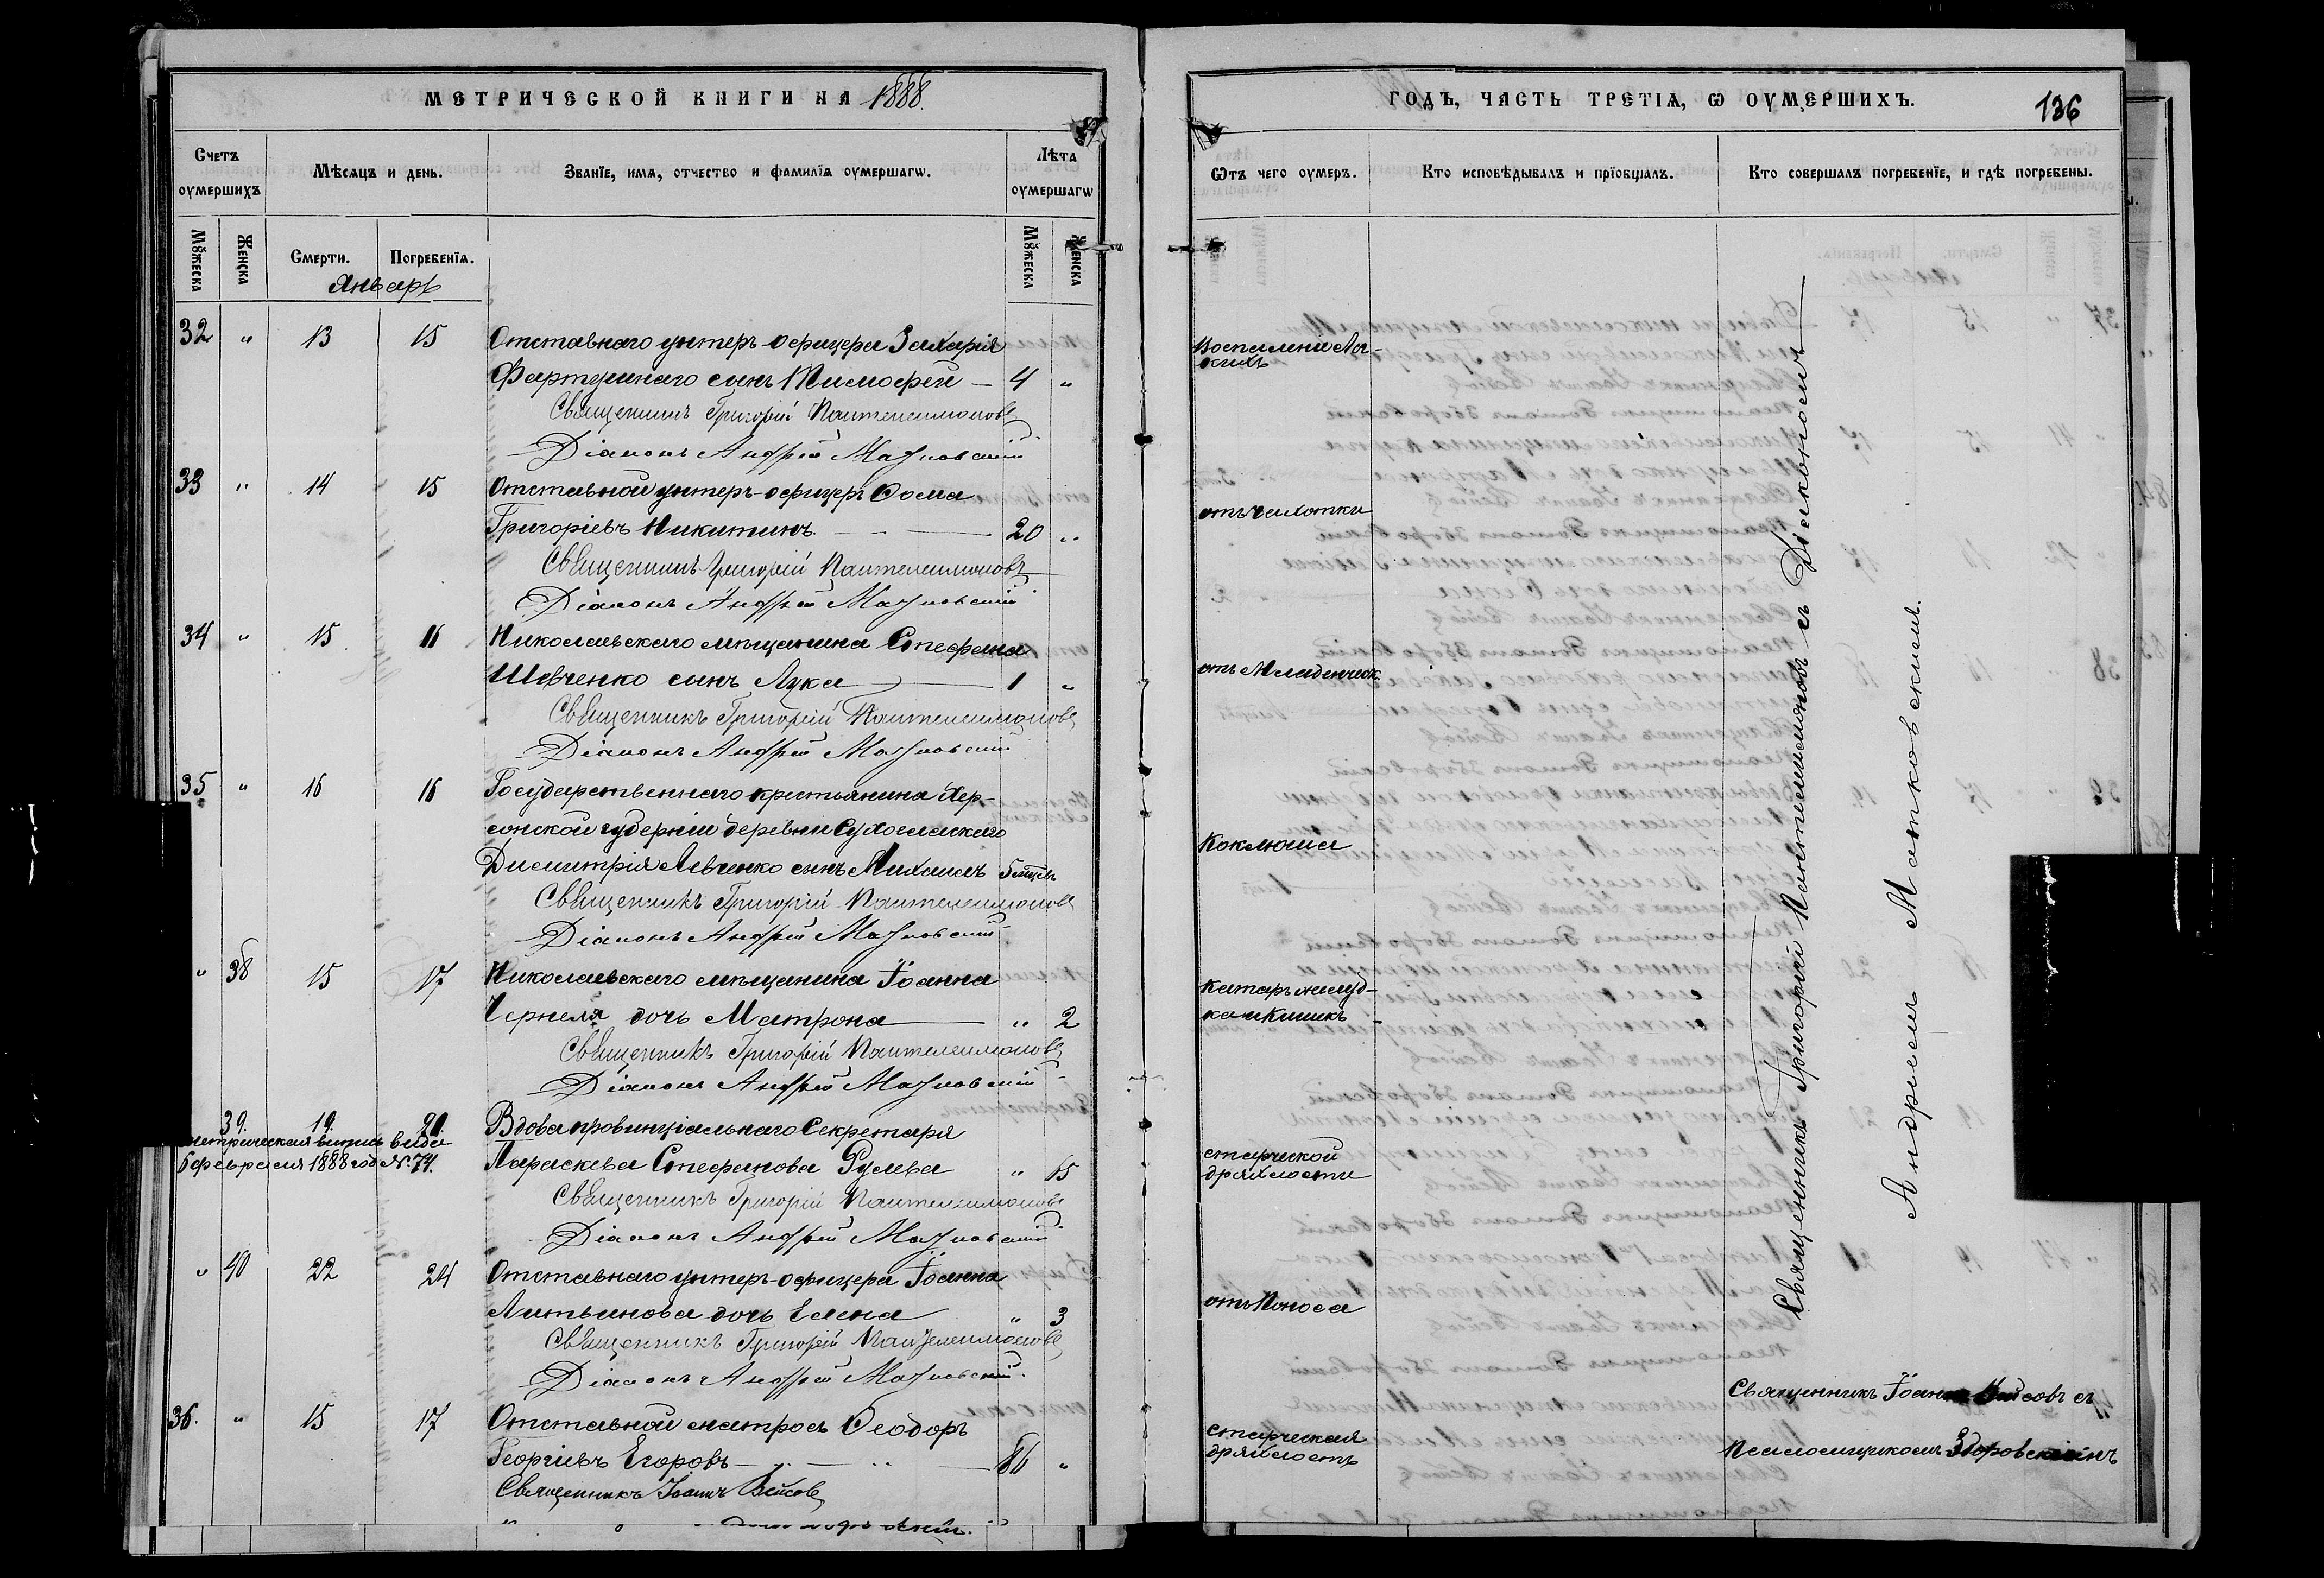 МЕТРИЧЕСКОЙ КНИГИ НА 1888.
Счетъ оумершихъ
Мѣсяцъ и день.
Званїе, имя, отчество и фамилїа оумершагѡ.
Лѣта оумершагѡ
Мꙋжеска
Женска
Смерти.
Погребенїя.
Мꙋжеска
Женска
Январь
32 " 13 15 Отставнаго унтеръ-офицера Захарія
Фартушнаго сынъ Тимофей — 4 "
Священникъ Григорій Пантелеимоновъ
Діаконъ Андрей Матковскій
33 " 14 15 Отставной унтеръ-офицеръ Ѳома
Григоріевъ Никитинъ — 20 "
Священникъ Григорій Пантелеимоновъ
Діаконъ Андрей Матковскій
34 " 15 16 Николаевскаго мѣщанина Стефана
Шевченко сынъ Лука — 1 "
Священникъ Григорій Пантелеимоновъ
Діаконъ Андрей Матковскій
35 " 16 16 Государственнаго крестьянина Хер-
сонской губерніи деревни
Димитрія Левченко сынъ Михаилъ 5 мѣсцвъ
Священникъ Григорій Пантелеимоновъ
Діаконъ Андрей Матковскій
" 38 15 17 Николаевскаго мѣщанина Іоанна
Чернеля дочь Матрона — " 2
Священникъ Григорій Пантелеимоновъ
Діаконъ Андрей Матковскій
39. 19. 20. Вдова провинціальнаго Секретаря
метрическая выпись выдана
6 февраля 1888 год № 74. Параскева Стефанова " 65
Священникъ Григорій Пантелеимоновъ
Діаконъ Андрей Матковскій
" 40 22 24 Отставнаго унтеръ-офицера Іоанна
Литвинова дочь Елена " 3
Священникъ Григорій Пантелеимоновъ
Діаконъ Андрей Матковскій
36. " 15 17 Отставной матросъ Ѳеодоръ
Георгіевъ Егоровъ — 86 "
Священникъ Іоаннъ
ГОДЪ, ЧАСТЬ ТРЕТІЯ, Ѡ ОУМЕРШИХЪ.
136
Ѿтъ чего оумеръ.
Кто исповѣдывалъ и прїобщалъ.
Кто совершалъ погребенїе, и гдѣ погребены.
Воспаленія Ле-
гкихъ
отъ чахотки
отъ Младенческ.
Коклюша
катаръ желуд-
ка и Кишекъ
старческой
дряхлости
отъ Поноса
старческая
дряхлость
Священникъ Григорій Пантелеимоновъ съ Діакономъ
Андреемъ Матковскимъ.
Священникъ Іоаннъ съ
Псаломщикомъ